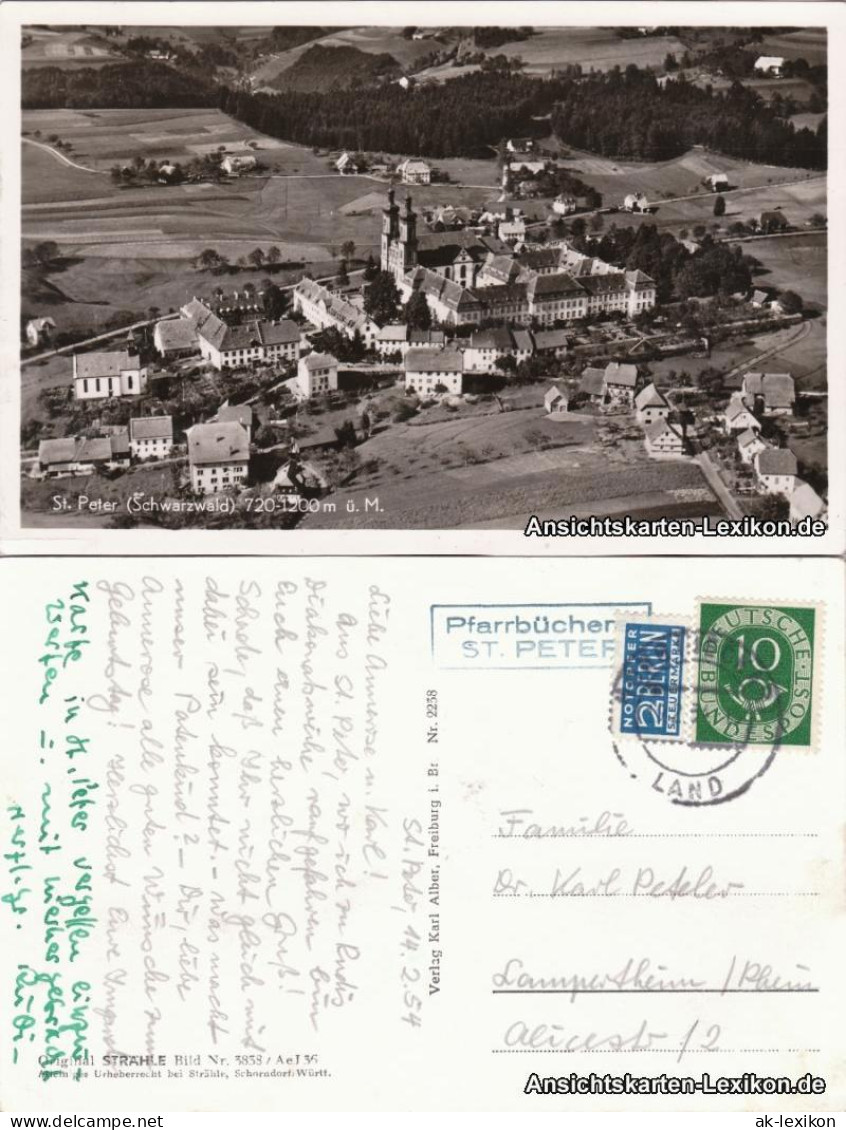 St. Peter (Schwarzwald) 720-1200 m ü. M.
Ansichtskarten-Lexikon.de
Pfarrbücherei
ST. PETER
NOTOPFER
2 BERLIN
STEUERMARKE
DEUTSCHE
10
BUNDESPOST
LAND
St. Peter, 14.2.54
Liebe Annerose u. Karl!
Aus St. Peter, wo ich zu Rudis
raufgefahren bin
Euch einen herzlichen Gruß!
Schade, daß Ihr nicht gleich mit
dabei sein konntet. - Was macht
unser Patenkind? - Dir, liebe
Annerose alle guten Wünsche zum
Geburtstag! Herzlichst Eure
Karte in St. Peter vergessen
u. mit hierher
Herzl. Gr. Rudi -
Verlag Karl Alber, Freiburg i. Br Nr. 2258
Familie
Dr. Karl Peteler
Lampertheim / Rhein
Alicestr / 2
Original STRÄHLE Bild Nr. 3838 / AeJ 36
Alleiniges Urheberrecht bei Strähle, Schorndorf/Württ.
Ansichtskarten-Lexikon.de
ak-lexikon